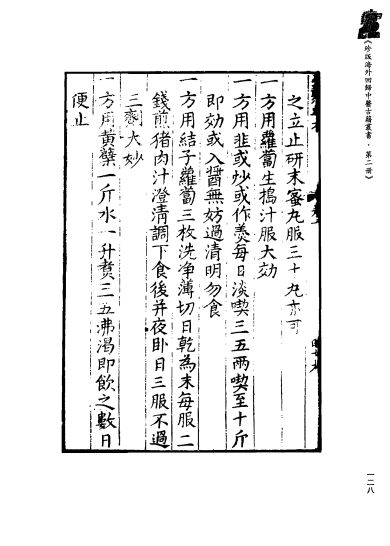 《珍版海外回歸中醫古籍叢書·第二冊》
之立止研末蜜丸服三十丸亦可
一方用蘿蔔生搗汁服大効
一方用韭或炒或作羹每日淡喫三五兩喫至十斤
即効或入醬無妨過清明勿食
一方用結子蘿蔔三枚洗净薄切日乾為末每服二
錢煎猪肉汁澄清調下食後并夜卧日三服不過
三劑大妙
一方用黄蘗一斤水一升煑三五沸渴即飲之數日
便止
一二八